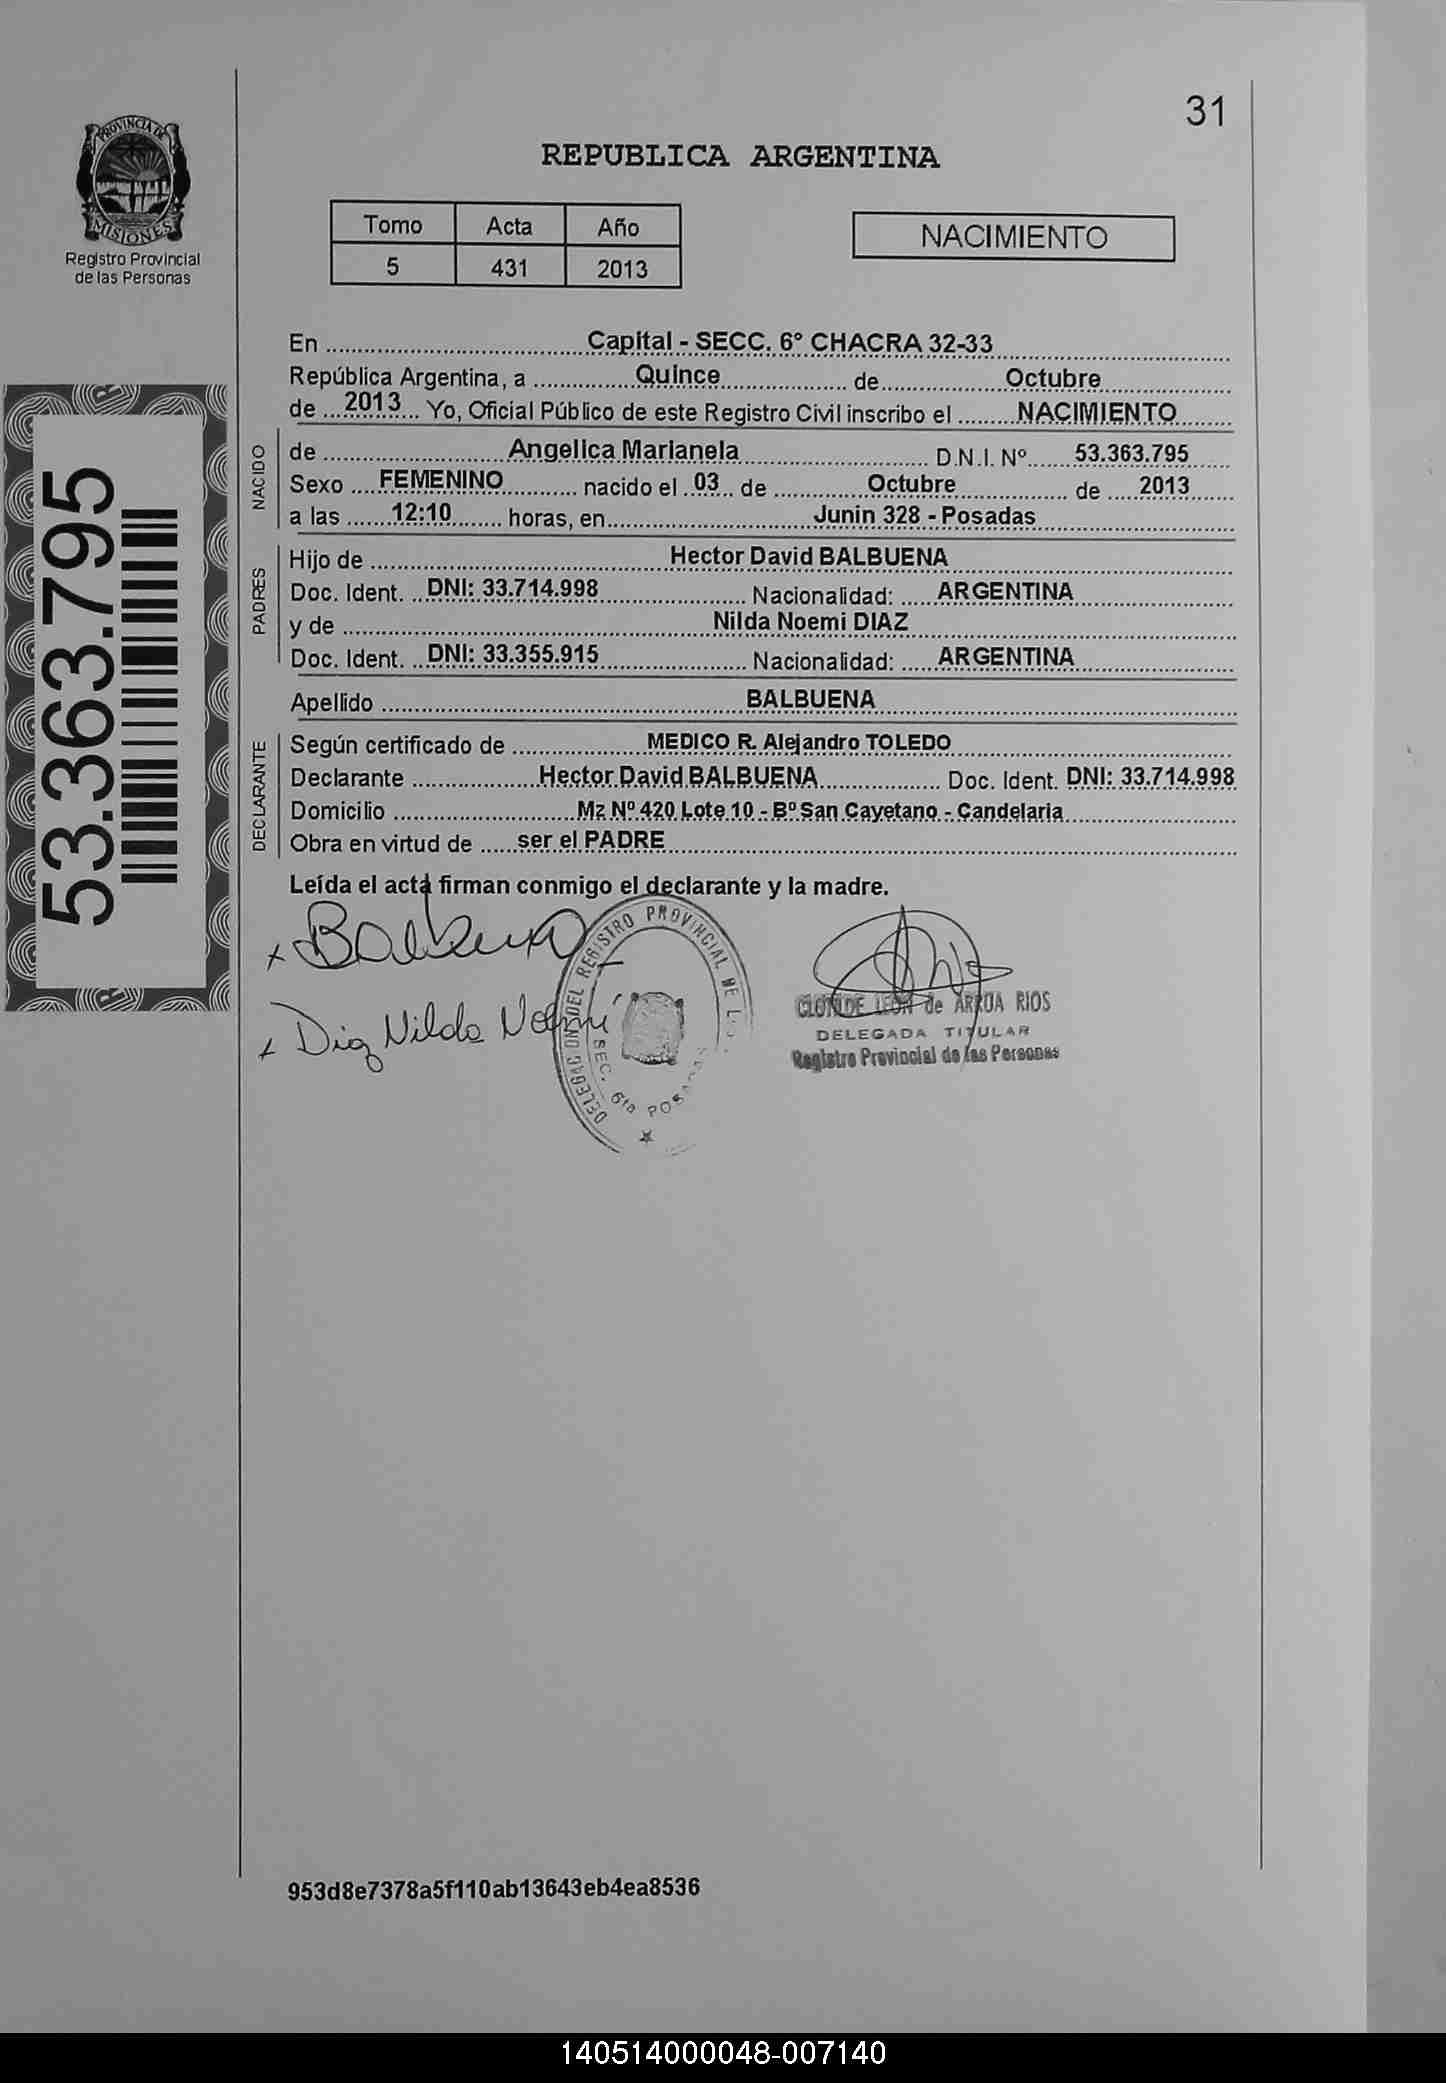 31
PROVINCIA DE
MISIONES
Registro Provincial
de las Personas
REPUBLICA ARGENTINA
Tomo Acta Año
5 431 2013
NACIMIENTO
53.363.795
En ........ Capital - SECC. 6° CHACRA 32-33 ........
República Argentina, a ........ Quince ........ de ........ Octubre ........
de ... 2013 ... Yo, Oficial Público de este Registro Civil inscribo el ........ NACIMIENTO ........
NACIDO
de ........ Angelica Marianela ........ D.N.I. Nº ...... 53.363.795 ......
Sexo .... FEMENINO .......... nacido el .. 03 .. de ........ Octubre ........ de .... 2013 ......
a las ...... 12:10 ....... horas, en ........ Junin 328 - Posadas ........
PADRES
Hijo de ........ Hector David BALBUENA ........
Doc. Ident. .. DNI: 33.714.998 ........ Nacionalidad: ..... ARGENTINA ........
y de ........ Nilda Noemi DIAZ ........
Doc. Ident. .. DNI: 33.355.915 ........ Nacionalidad: ..... ARGENTINA ........
Apellido ........ BALBUENA ........
DECLARANTE
Según certificado de ........ MEDICO R. Alejandro TOLEDO ........
Declarante ........ Hector David BALBUENA ........ Doc. Ident. DNI: 33.714.998
Domicilio ........ Mz Nº 420 Lote 10 - Bº San Cayetano - Candelaria ........
Obra en virtud de ..... ser el PADRE ........
Leída el acta firman conmigo el declarante y la madre.
x Balbuena
x Diaz Nilda Noemí
DELEGACION DEL REGISTRO PROVINCIAL DE L
SEC. 6ta POSADAS
CLOTILDE LEON de ARRUA RIOS
DELEGADA TITULAR
Registro Provincial de las Personas
953d8e7378a5f110ab13643eb4ea8536
140514000048-007140